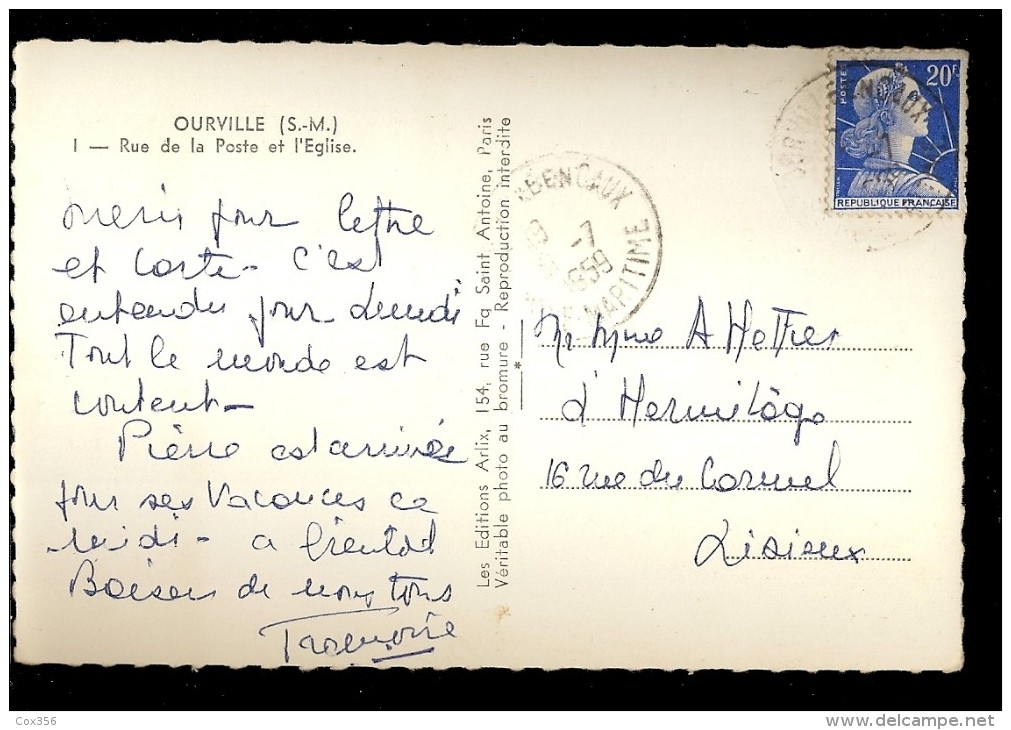 OURVILLE (S.-M.)
I — Rue de la Poste et l'Eglise.
merci pour lettre
et carte - c'est
entendu pour Lundi
Tout le monde est
content -
Pierre est arrivée
pour ses Vacances ce
midi - a bientôt
Baisers de nous tous
Les Editions Arlix, 154, rue Fg Saint Antoine, Paris
Véritable photo au bromure - Reproduction interdite
MARITIME
1959
POSTES
20F
REPUBLIQUE FRANÇAISE
Mr Mme A
d'Hermitage
16 rue du Carmel
Lisieux
Cox356
delcampe.net